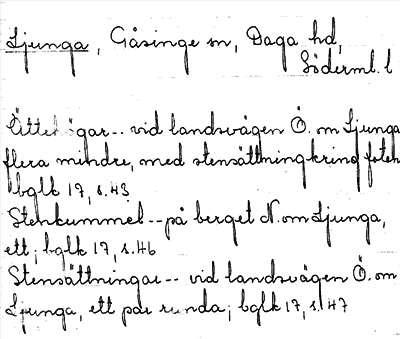 Ljunga, Gåsinge sn, Daga hd,
Söderml. l
Ättehögar-- vid landsvägen Ö. om Ljunga
flera mindre, med stensättning kring foten
bglk 17, s.43
Stenkummel-- på berget N. om Ljunga,
ett; bglk 17, s.46
Stensättningar-- vid landsvägen Ö. om
Ljunga, ett par runda; bglk 17, s. 47